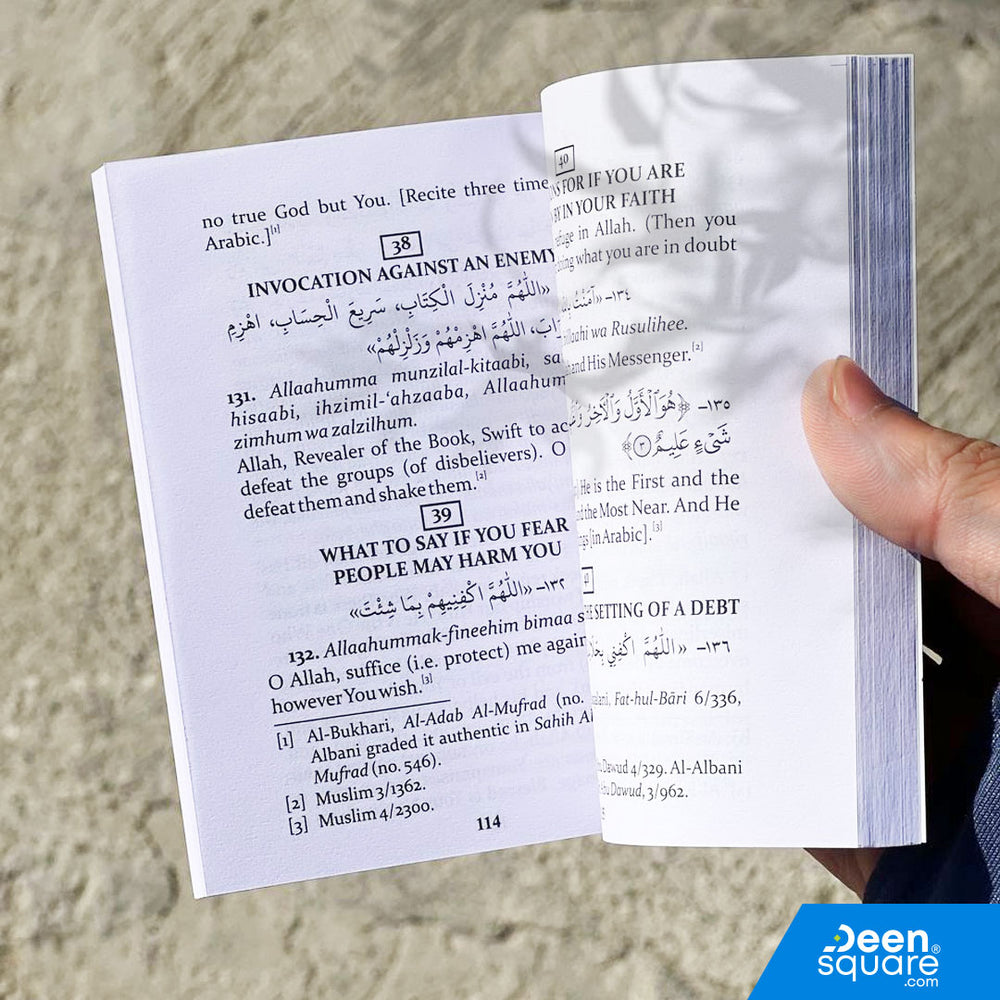 no true God but You. [Recite three time
Arabic.][1]
38
INVOCATION AGAINST AN ENEMY
«اللَّهُمَّ مُنْزِلَ الْكِتَابِ، سَرِيعَ الْحِسَابِ، اهْزِمِ
اللَّهُمَّ اهْزِمْهُمْ وَزَلْزِلْهُمْ»
131. Allaahumma munzilal-kitaabi, sa
hisaabi, ihzimil-'ahzaaba, Allaahum
zimhum wa zalzilhum.
Allah, Revealer of the Book, Swift to ac
defeat the groups (of disbelievers). O
defeat them and shake them.[2]
39
WHAT TO SAY IF YOU FEAR
PEOPLE MAY HARM YOU
١٣٢- «اللَّهُمَّ اكْفِنِيهِمْ بِمَا شِئْتَ»
132. Allaahummak-fineehim bimaa s
O Allah, suffice (i.e. protect) me again
however You wish.[3]
[1] Al-Bukhari, Al-Adab Al-Mufrad (no.
Albani graded it authentic in Sahih Al
Mufrad (no. 546).
[2] Muslim 3/1362.
[3] Muslim 4/2300.
114
40
FOR IF YOU ARE
IN YOUR FAITH
in Allah. (Then you
what you are in doubt
١٣٤- «آمَنْتُ
wa Rusulihee.
and His Messenger.[2]
١٣٥- ﴿هُوَ الْأَوَّلُ وَالْآخِرُ
شَيْءٍ عَلِيمٌ ٣﴾
He is the First and the
the Most Near. And He
[in Arabic].[3]
41
SETTING OF A DEBT
١٣٦- «اللَّهُمَّ اكْفِنِي
Fat-hul-Bāri 6/336,
Dawud 4/329. Al-Albani
Dawud, 3/962.
Deen®
square
.com